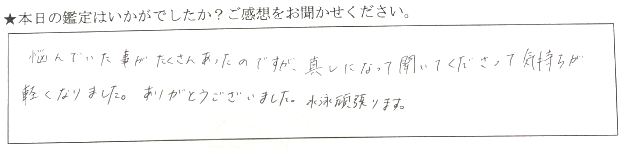 ★本日の鑑定はいかがでしたか？ご感想をお聞かせください。
悩んでいた事がたくさんあったのですが、真しになって聞いてくださって気持ちが
軽くなりました。ありがとうございました。水泳頑張ります。